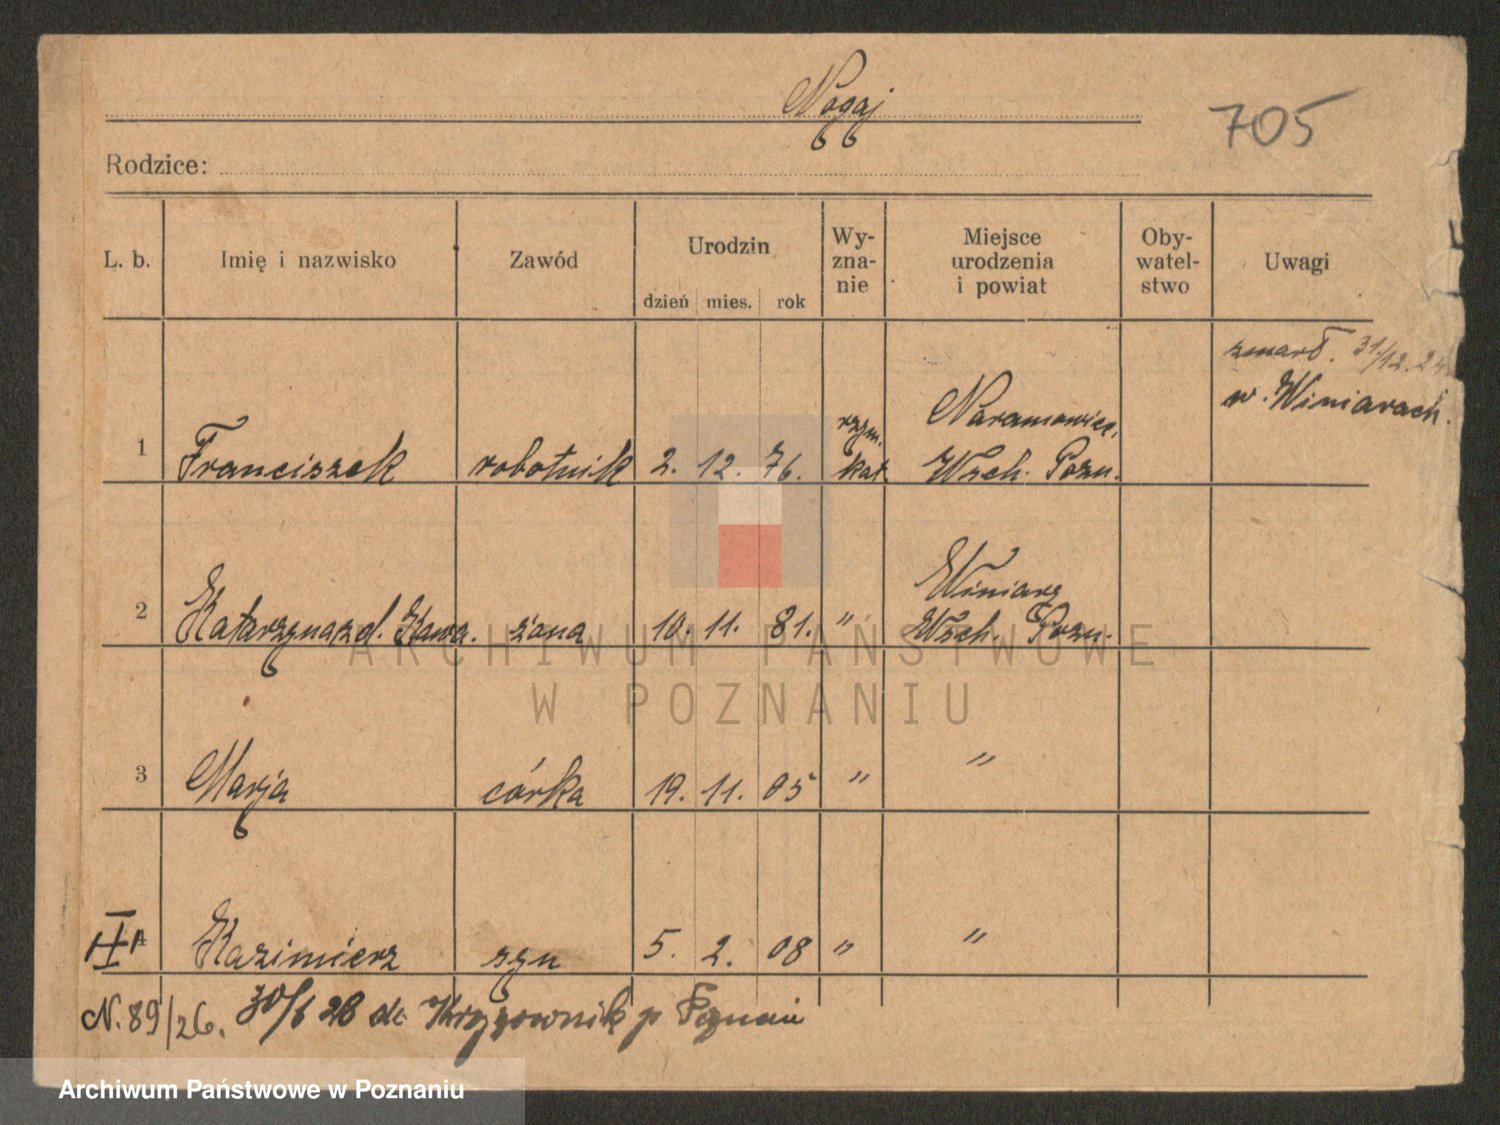 Nogaj
705
Rodzice:
L. b. Imię i nazwisko Zawód Urodzin dzień mies. rok Wy-zna-nie Miejsce urodzenia i powiat Oby-watel-stwo Uwagi
zmarł. 31/12. 24
w. Winiarach.
Naramowice,
rzym.
1 Franciszek robotnik 2. 12. 76. kat. Wsch. Pozn.
Winiary
2 Katarzyna zd. Kawa. żona 10. 11. 81. " Wsch. Pozn.
ARCHIWUM PAŃSTWOWE
W POZNANIU
3 Marja córka 19. 11. 05 " "
4 Kazimierz syn 5. 2. 08 " "
N. 89/26. 30/6 28 do Krzyżownik p. Poznań
Archiwum Państwowe w Poznaniu